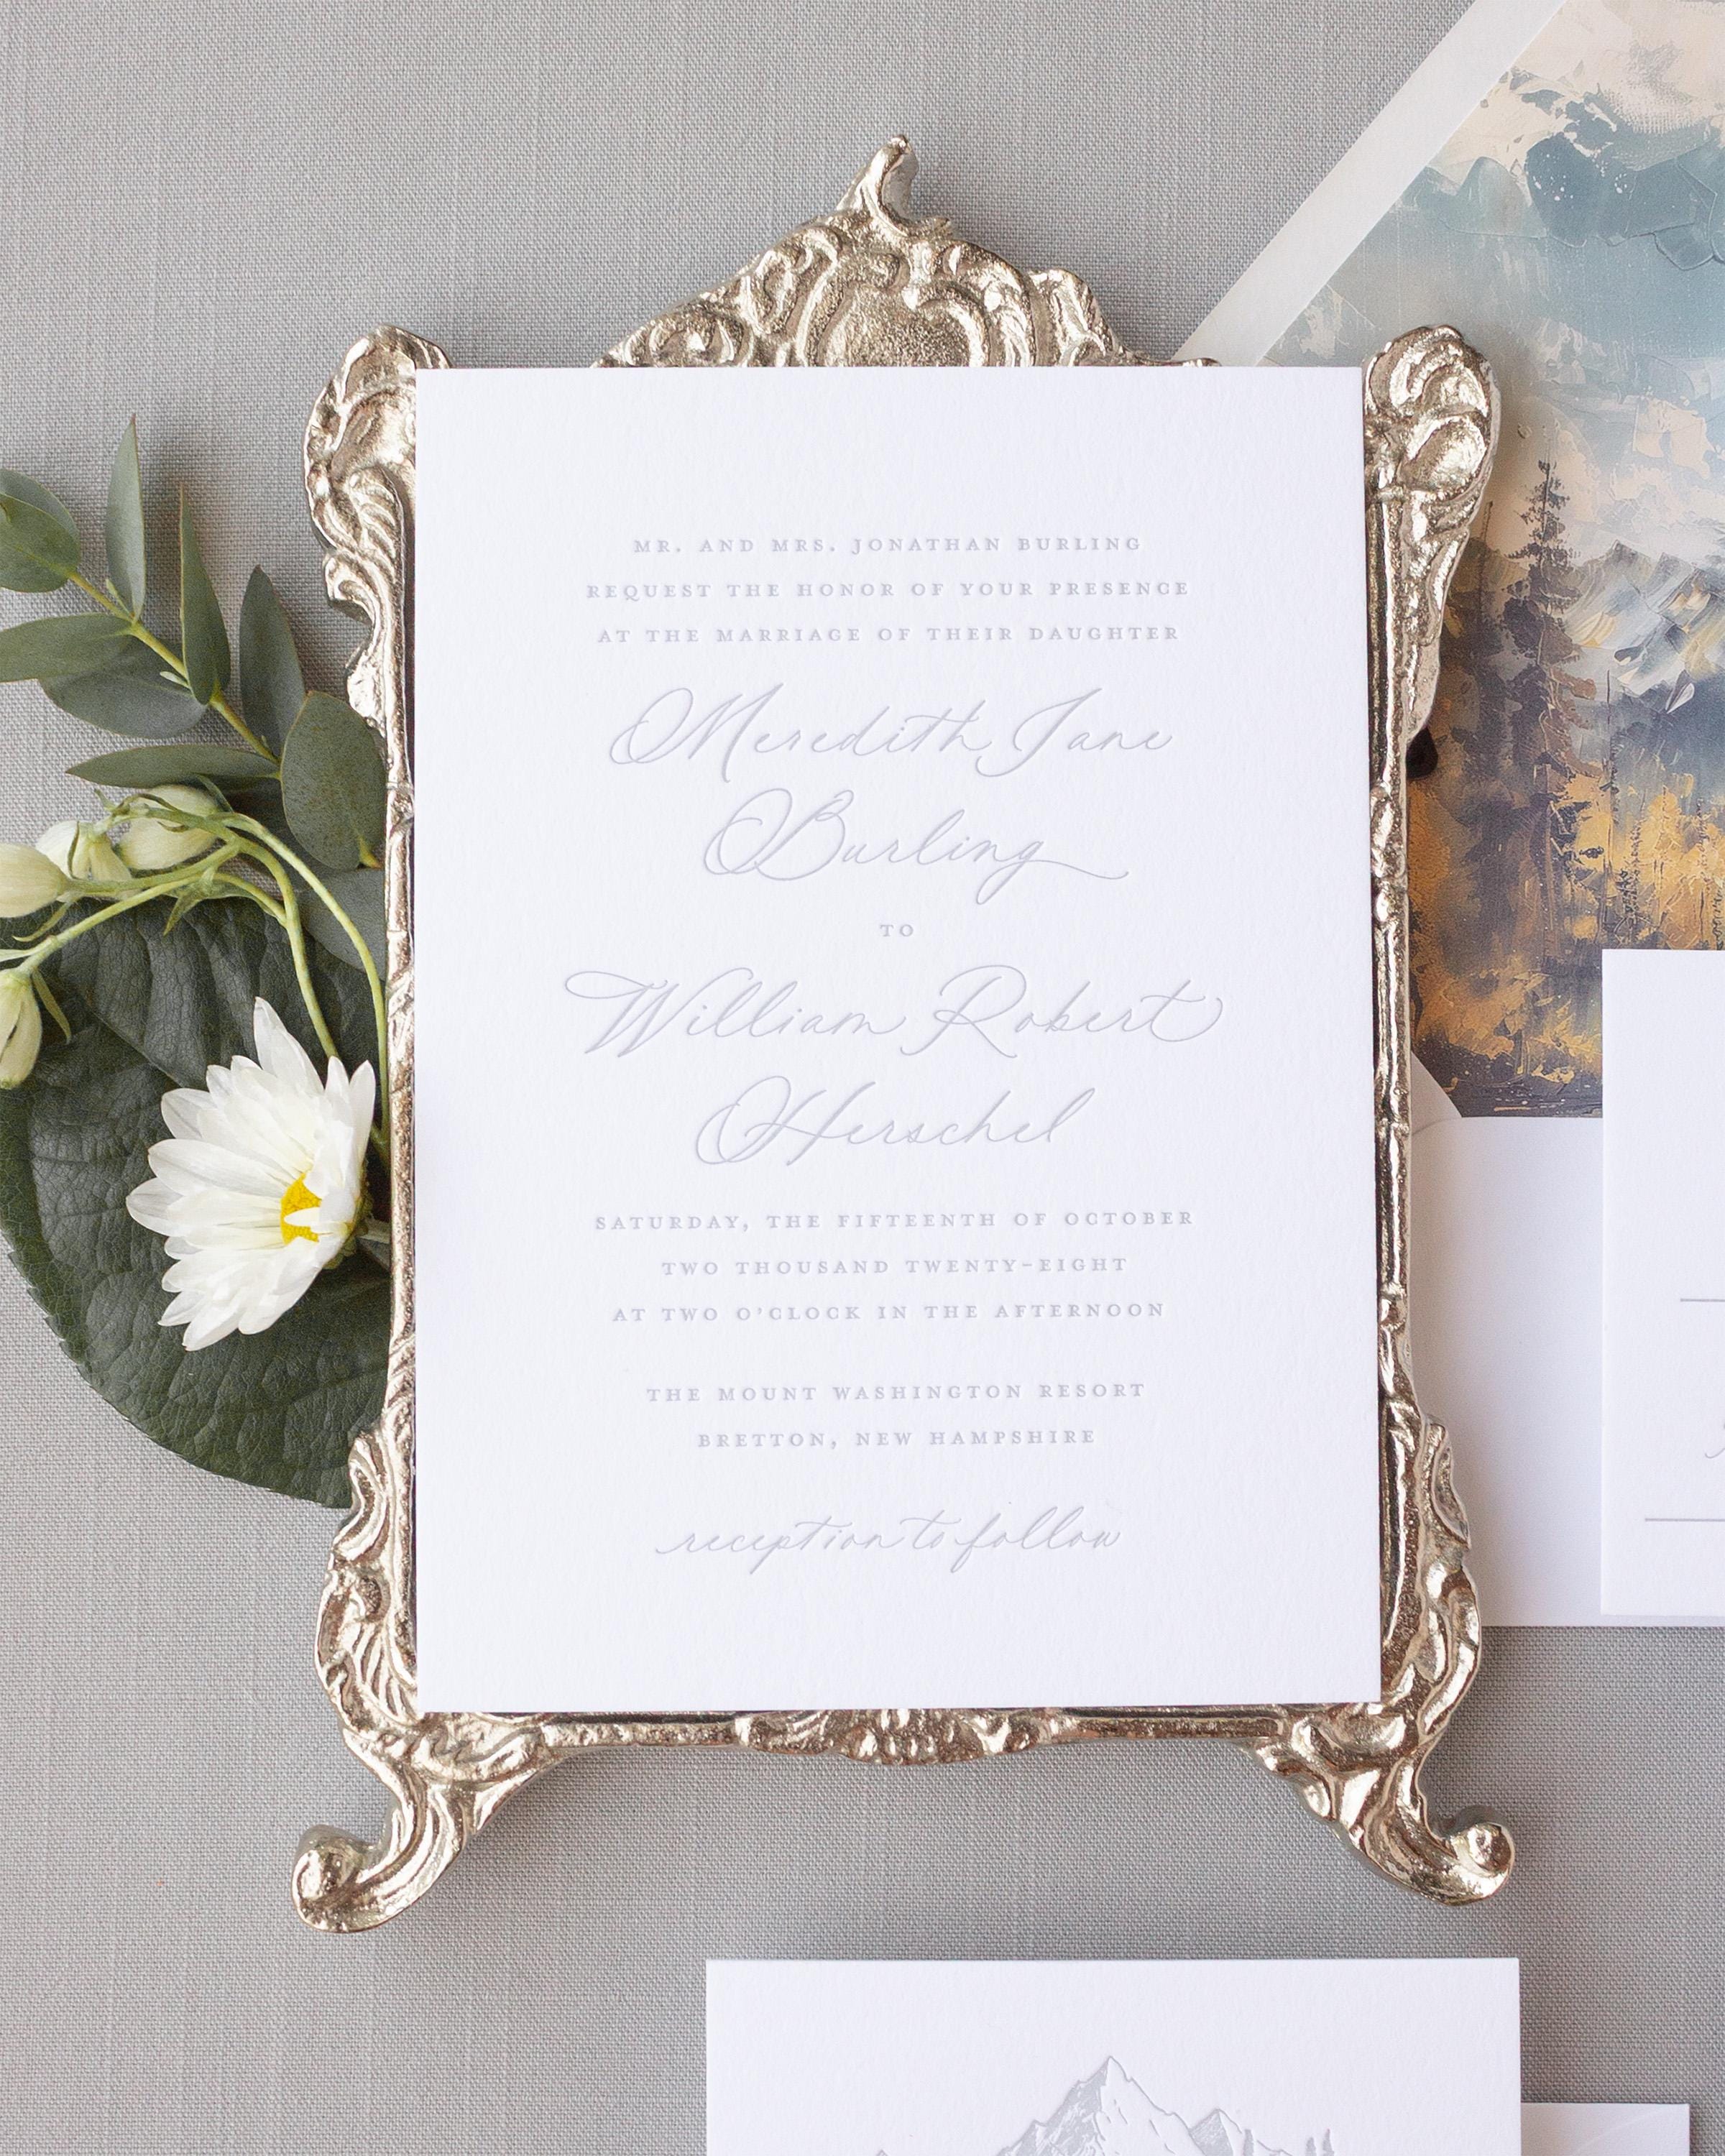 MR. AND MRS. JONATHAN BURLING
REQUEST THE HONOR OF YOUR PRESENCE
AT THE MARRIAGE OF THEIR DAUGHTER
Meredith Jane
Burling
TO
William Robert
Herschel
SATURDAY, THE FIFTEENTH OF OCTOBER
TWO THOUSAND TWENTY-EIGHT
AT TWO O'CLOCK IN THE AFTERNOON
THE MOUNT WASHINGTON RESORT
BRETTON, NEW HAMPSHIRE
reception to follow